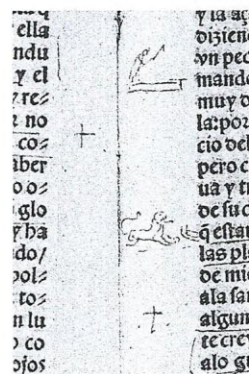 ella
ndu
y el
y re⸗
no
co⸗
aber
o o⸗
glo
y ha
do/
pol⸗
to⸗
n lu
o co
ojos
y la aç
diziend
vn pec
mando
muy d
la:por
cio del
pero c
ua y ti
de su c
q̃ estau
las pl
de mi
ala san
algun
te crey
alo gu